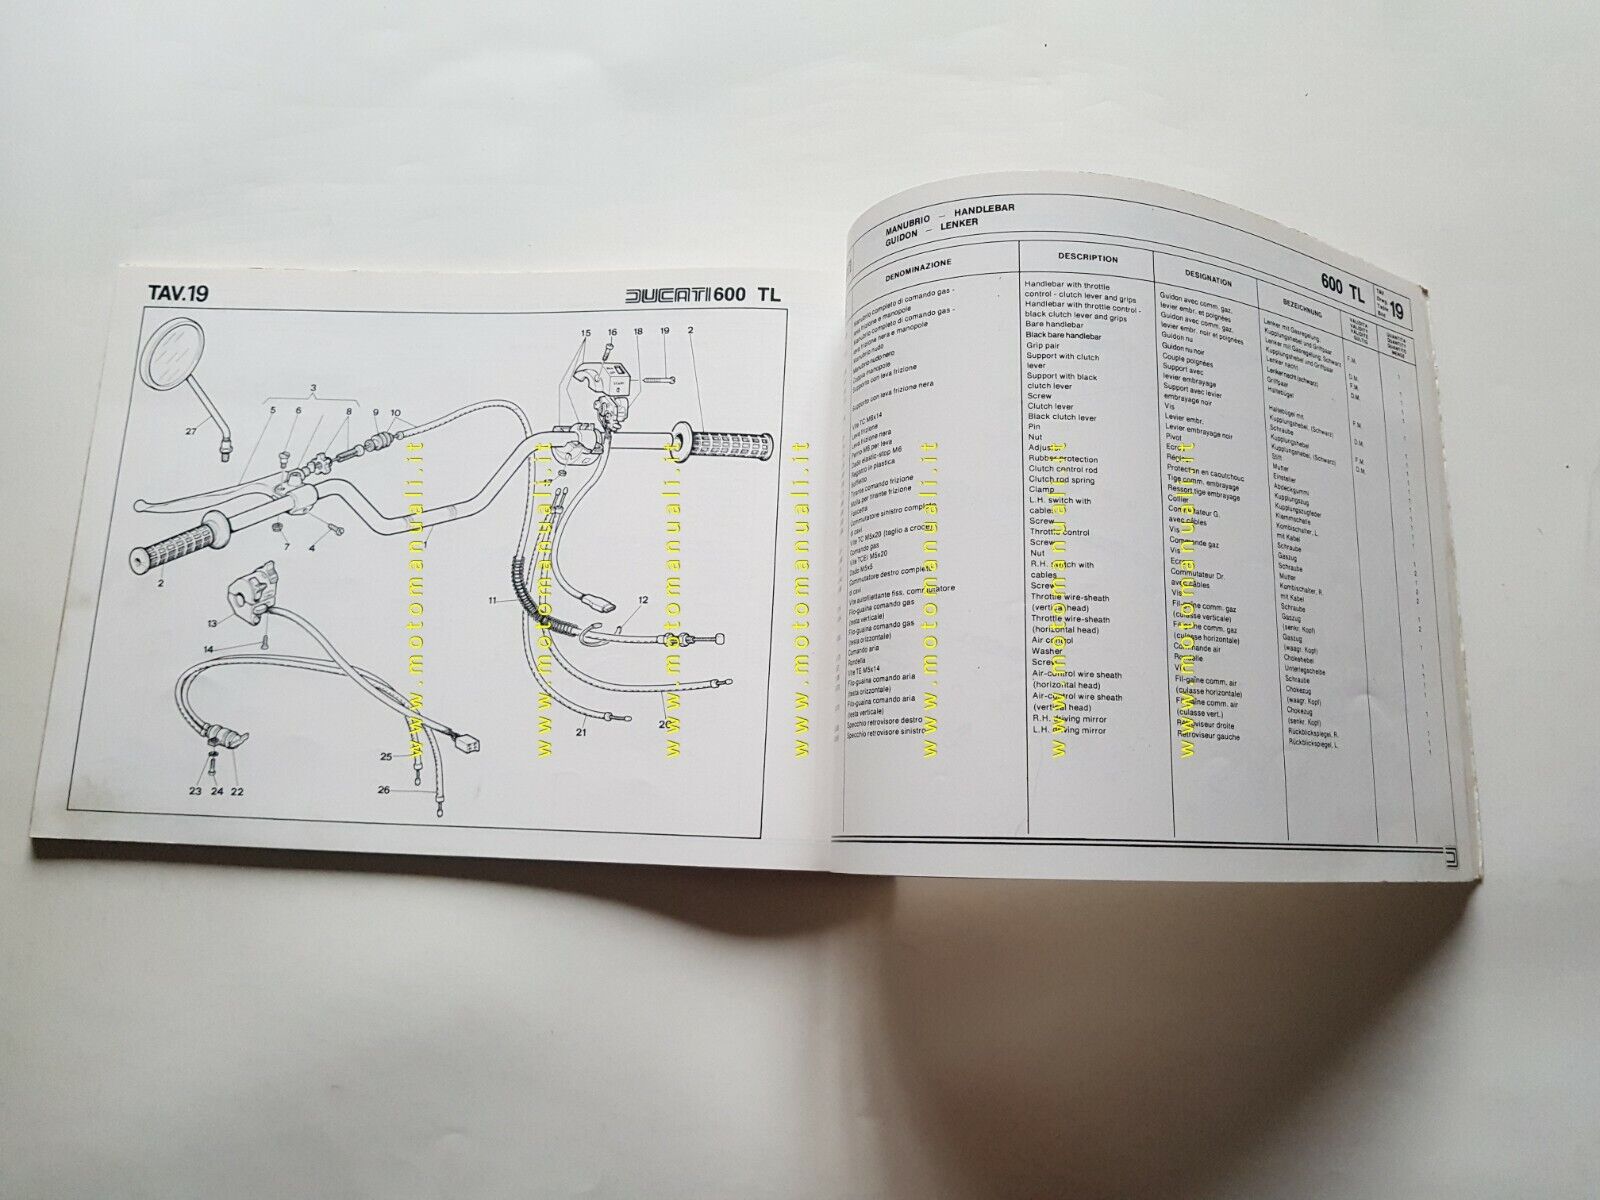 TAV.19
DUCATI 600 TL
15 16 18 19 2
3
5 6 8 9 10
27
7 4
2
11 12
13
14
20
21
25
26
23 24 22
www.motomanuali.it
www.motomanuali.it
www.motomanuali.it
www.motomanuali.it
www.motomanuali.it
www.motomanuali.it
www.motomanuali.it
MANUBRIO - HANDLEBAR
GUIDON - LENKER
600 TL
19
DENOMINAZIONE
Manubrio completo di comando gas -
leva frizione e manopole
Manubrio completo di comando gas -
leva frizione nera e manopole
Manubrio nudo
Manubrio nudo nero
Coppia manopole
Supporto con leva frizione
Supporto con leva frizione nera
Vite TC M6x14
Leva frizione
Leva frizione nera
Perno M6 per leva
Dado elastic-stop M6
Registro in plastica
Soffietto
Tirante comando frizione
Molla per tirante frizione
Fascetta
Commutatore sinistro completo
di cavi
Vite TC M5x20 (taglio a croce)
Comando gas
Vite TCEI M5x20
Dado M5x5
Commutatore destro completo
di cavi
Vite autofilettante fiss. commutatore
Filo-guaina comando gas
(testa verticale)
Filo-guaina comando gas
(testa orizzontale)
Comando aria
Rondella
Vite TE M5x14
Filo-guaina comando aria
(testa orizzontale)
Filo-guaina comando aria
(testa verticale)
Specchio retrovisore destro
Specchio retrovisore sinistro
DESCRIPTION
Handlebar with throttle
control - clutch lever and grips
Handlebar with throttle control -
black clutch lever and grips
Bare handlebar
Black bare handlebar
Grip pair
Support with clutch
lever
Support with black
clutch lever
Screw
Clutch lever
Black clutch lever
Pin
Nut
Adjuster
Rubber protection
Clutch control rod
Clutch rod spring
Clamp
L.H. switch with
cables
Screw
Throttle control
Screw
Nut
R.H. switch with
cables
Screw
Throttle wire-sheath
(vertical head)
Throttle wire-sheath
(horizontal head)
Air control
Washer
Screw
Air-control wire sheath
(horizontal head)
Air-control wire sheath
(vertical head)
R.H. driving mirror
L.H. driving mirror
DESIGNATION
Guidon avec comm. gaz,
levier embr. et poignées
Guidon avec comm. gaz,
levier embr. noir et poignées
Guidon nu
Guidon nu noir
Couple poignées
Support avec
levier embrayage
Support avec levier
embrayage noir
Vis
Levier embr.
Levier embrayage noir
Pivot
Ecrou
Protection en caoutchouc
Tige comm. embrayage
Ressort tige embrayage
Collier
Commutateur G.
avec câbles
Vis
Commande gaz
Vis
Ecrou
Commutateur Dr.
avec câbles
Vis
Fil-gaîne comm. gaz
(culasse verticale)
Fil-gaîne comm. gaz
(culasse horizontale)
Commande air
Rondelle
Vis
Fil-gaîne comm. air
(culasse horizontale)
Fil-gaîne comm. air
(culasse vert.)
Rétroviseur droite
Rétroviseur gauche
BEZEICHNUNG
Lenker mit Gasregelung,
Kupplungshebel und Griffpaar
Lenker mit Gasregelung, Schwarz
Kupplungshebel und Griffpaar
Lenker nacht
Lenkernecht (schwarz)
Griffpaar
Haltebügel
Haltebügel mit
Kupplungshebel, (Schwarz)
Schraube
Kupplungshebel
Kupplungshebel, (Schwarz)
Stift
Mutter
Einsteller
Abdeckgummi
Kupplungszug
Kupplungszugfeder
Klemmschelle
Kombischalter, L.
mit Kabel
Schraube
Gaszug
Schraube
Mutter
Kombischalter, R.
mit Kabel
Schraube
Gaszug
(senkr. Kopf)
Gaszug
(waagr. Kopf)
Chokehebel
Unterlegscheibe
Schraube
Chokezug
(waagr. Kopf)
Chokezug
(senkr. Kopf)
Rückblickspiegel, R.
Rückblickspiegel, L.